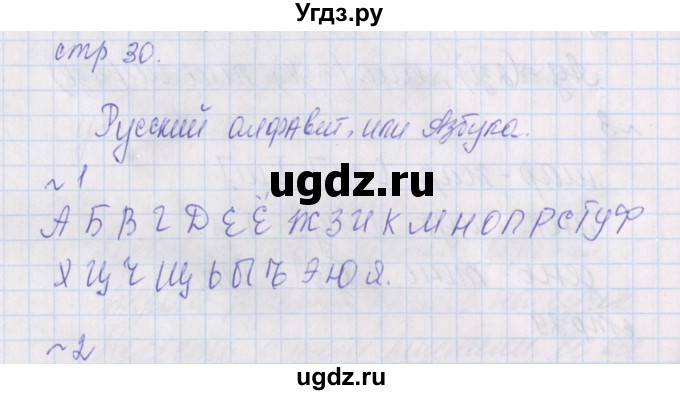 Угдз.ру
стр 30.
Русский алфавит, или Азбука.
ugdz.ru
~ 1
А Б В Г Д Е Ё Ж З И К М Н О П Р С Т У Ф
Х Ц Ч Щ Ь Ы Ъ Э Ю Я.
~ 2
ugdz.ru